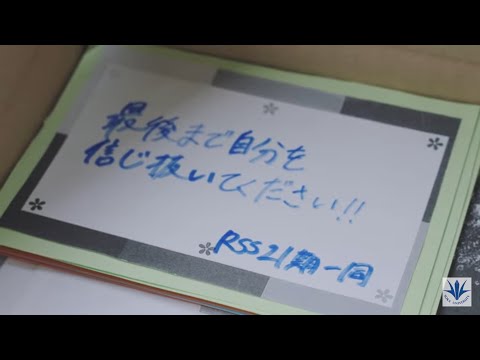 最後まで自分を
信じ抜いてください!!
RSS21期一同